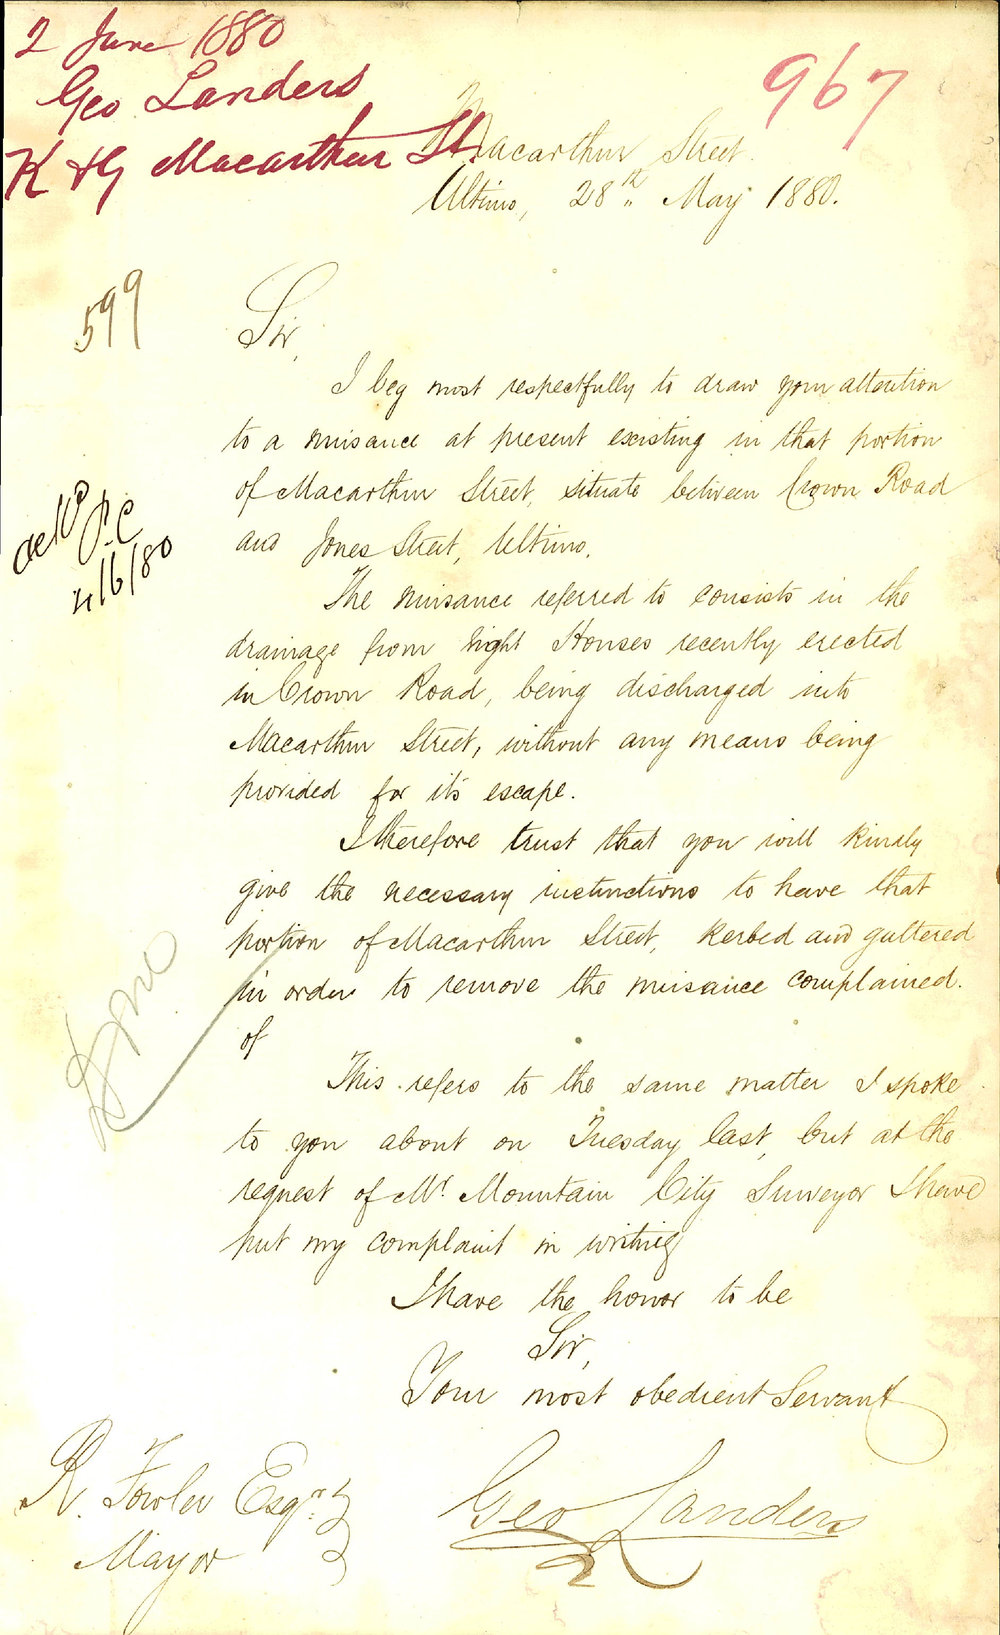 2 June 1880
Geo Landers
K & G Macarthur St.
967
Macarthur Street.
Ultimo, 28th May 1880.
599
Sir,
I beg most respectfully to draw your attention
to a nuisance at present existing in that portion
of Macarthur Street, situate between Crown Road
and Jones Street, Ultimo.
ackd P.C
4/6/80
The nuisance referred to consists in the
drainage from eight Houses recently erected
in Crown Road, being discharged into
Macarthur Street, without any means being
provided for it's escape.
I therefore trust that you will kindly
give the necessary instructions to have that
portion of Macarthur Street, kerbed and guttered
in order to remove the nuisance complained.
of
Done
This refers to the same matter I spoke
to you about on Tuesday last, but at the
request of Mr. Mountain City Surveyor I have
put my complaint in writing
I have the honor to be
Sir,
Your most obedient Servant
R. Fowler Esqr.
Mayor
Geo Landers